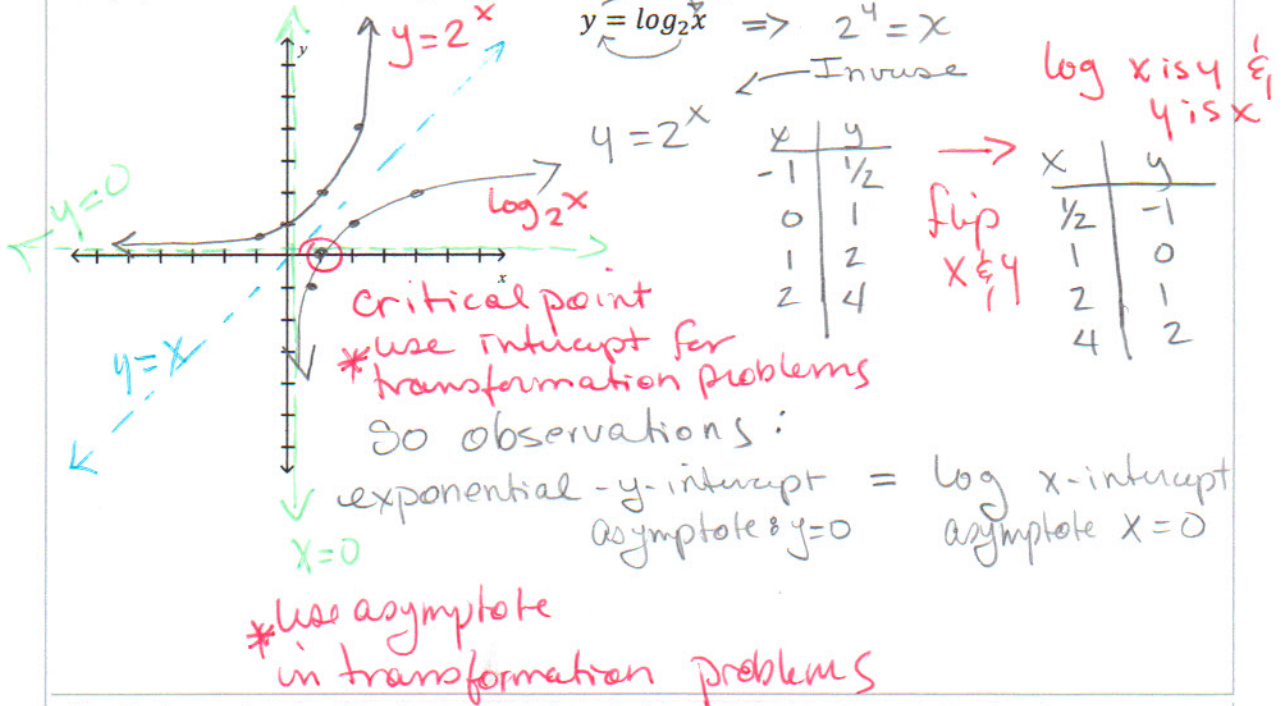 y = log₂x => 2^y = x
y = 2^x
y
Inverse
log x is y &
y is x
y = 2^x
x | y
-1 | ½
0 | 1
1 | 2
2 | 4
flip
x & y
x | y
½ | -1
1 | 0
2 | 1
4 | 2
y=0
log₂x
x
critical point
* use intercept for
transformation problems
y=x
So observations:
exponential - y-intercept = log x-intercept
asymptote: y=0 asymptote x=0
x=0
* use asymptote
in transformation problems